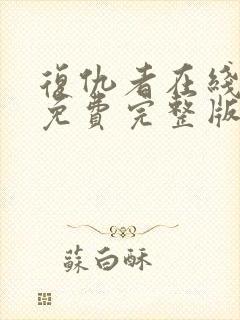 復仇者在綫
免費完整版
蘇白酥